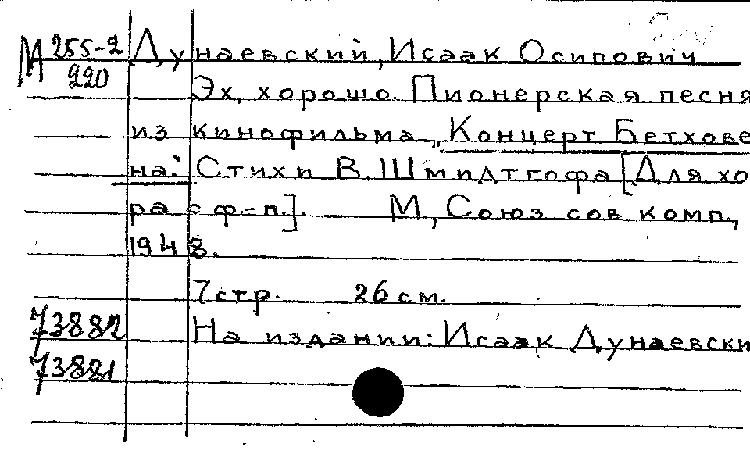 М 255-2 Дунаевский, Исаак Осипович
220 Эх, хорошо. Пионерская песня
из кинофильма „Концерт Бетхове
на." Стихи В. Шмидтгофа [Для хо
ра с ф-п.]. М., Союз сов комп,
1948.
7 стр. 26 см.
73882 На издании: Исаак Дунаевски
73881